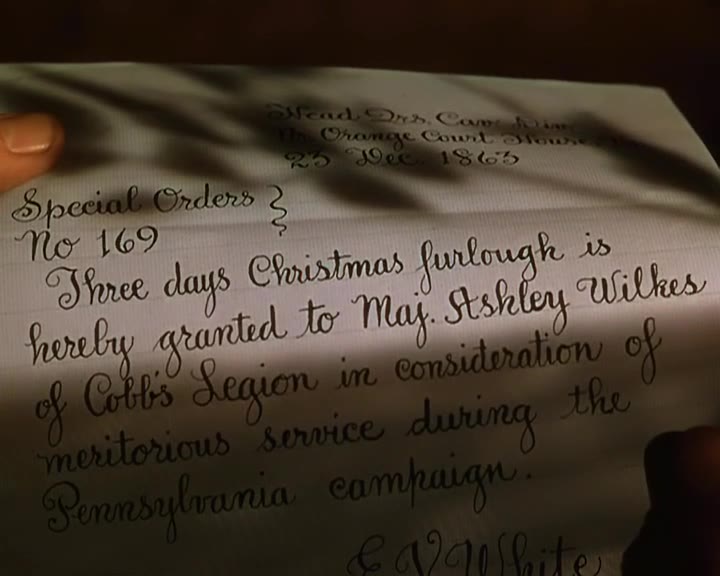 Head Qrs. Cav. Div.
Nr. Orange Court House
23 Dec. 1863
Special Orders
No 169
Three days Christmas furlough is
hereby granted to Maj. Ashley Wilkes
of Cobb's Legion in consideration of
meritorious service during the
Pennsylvania campaign.
E V White